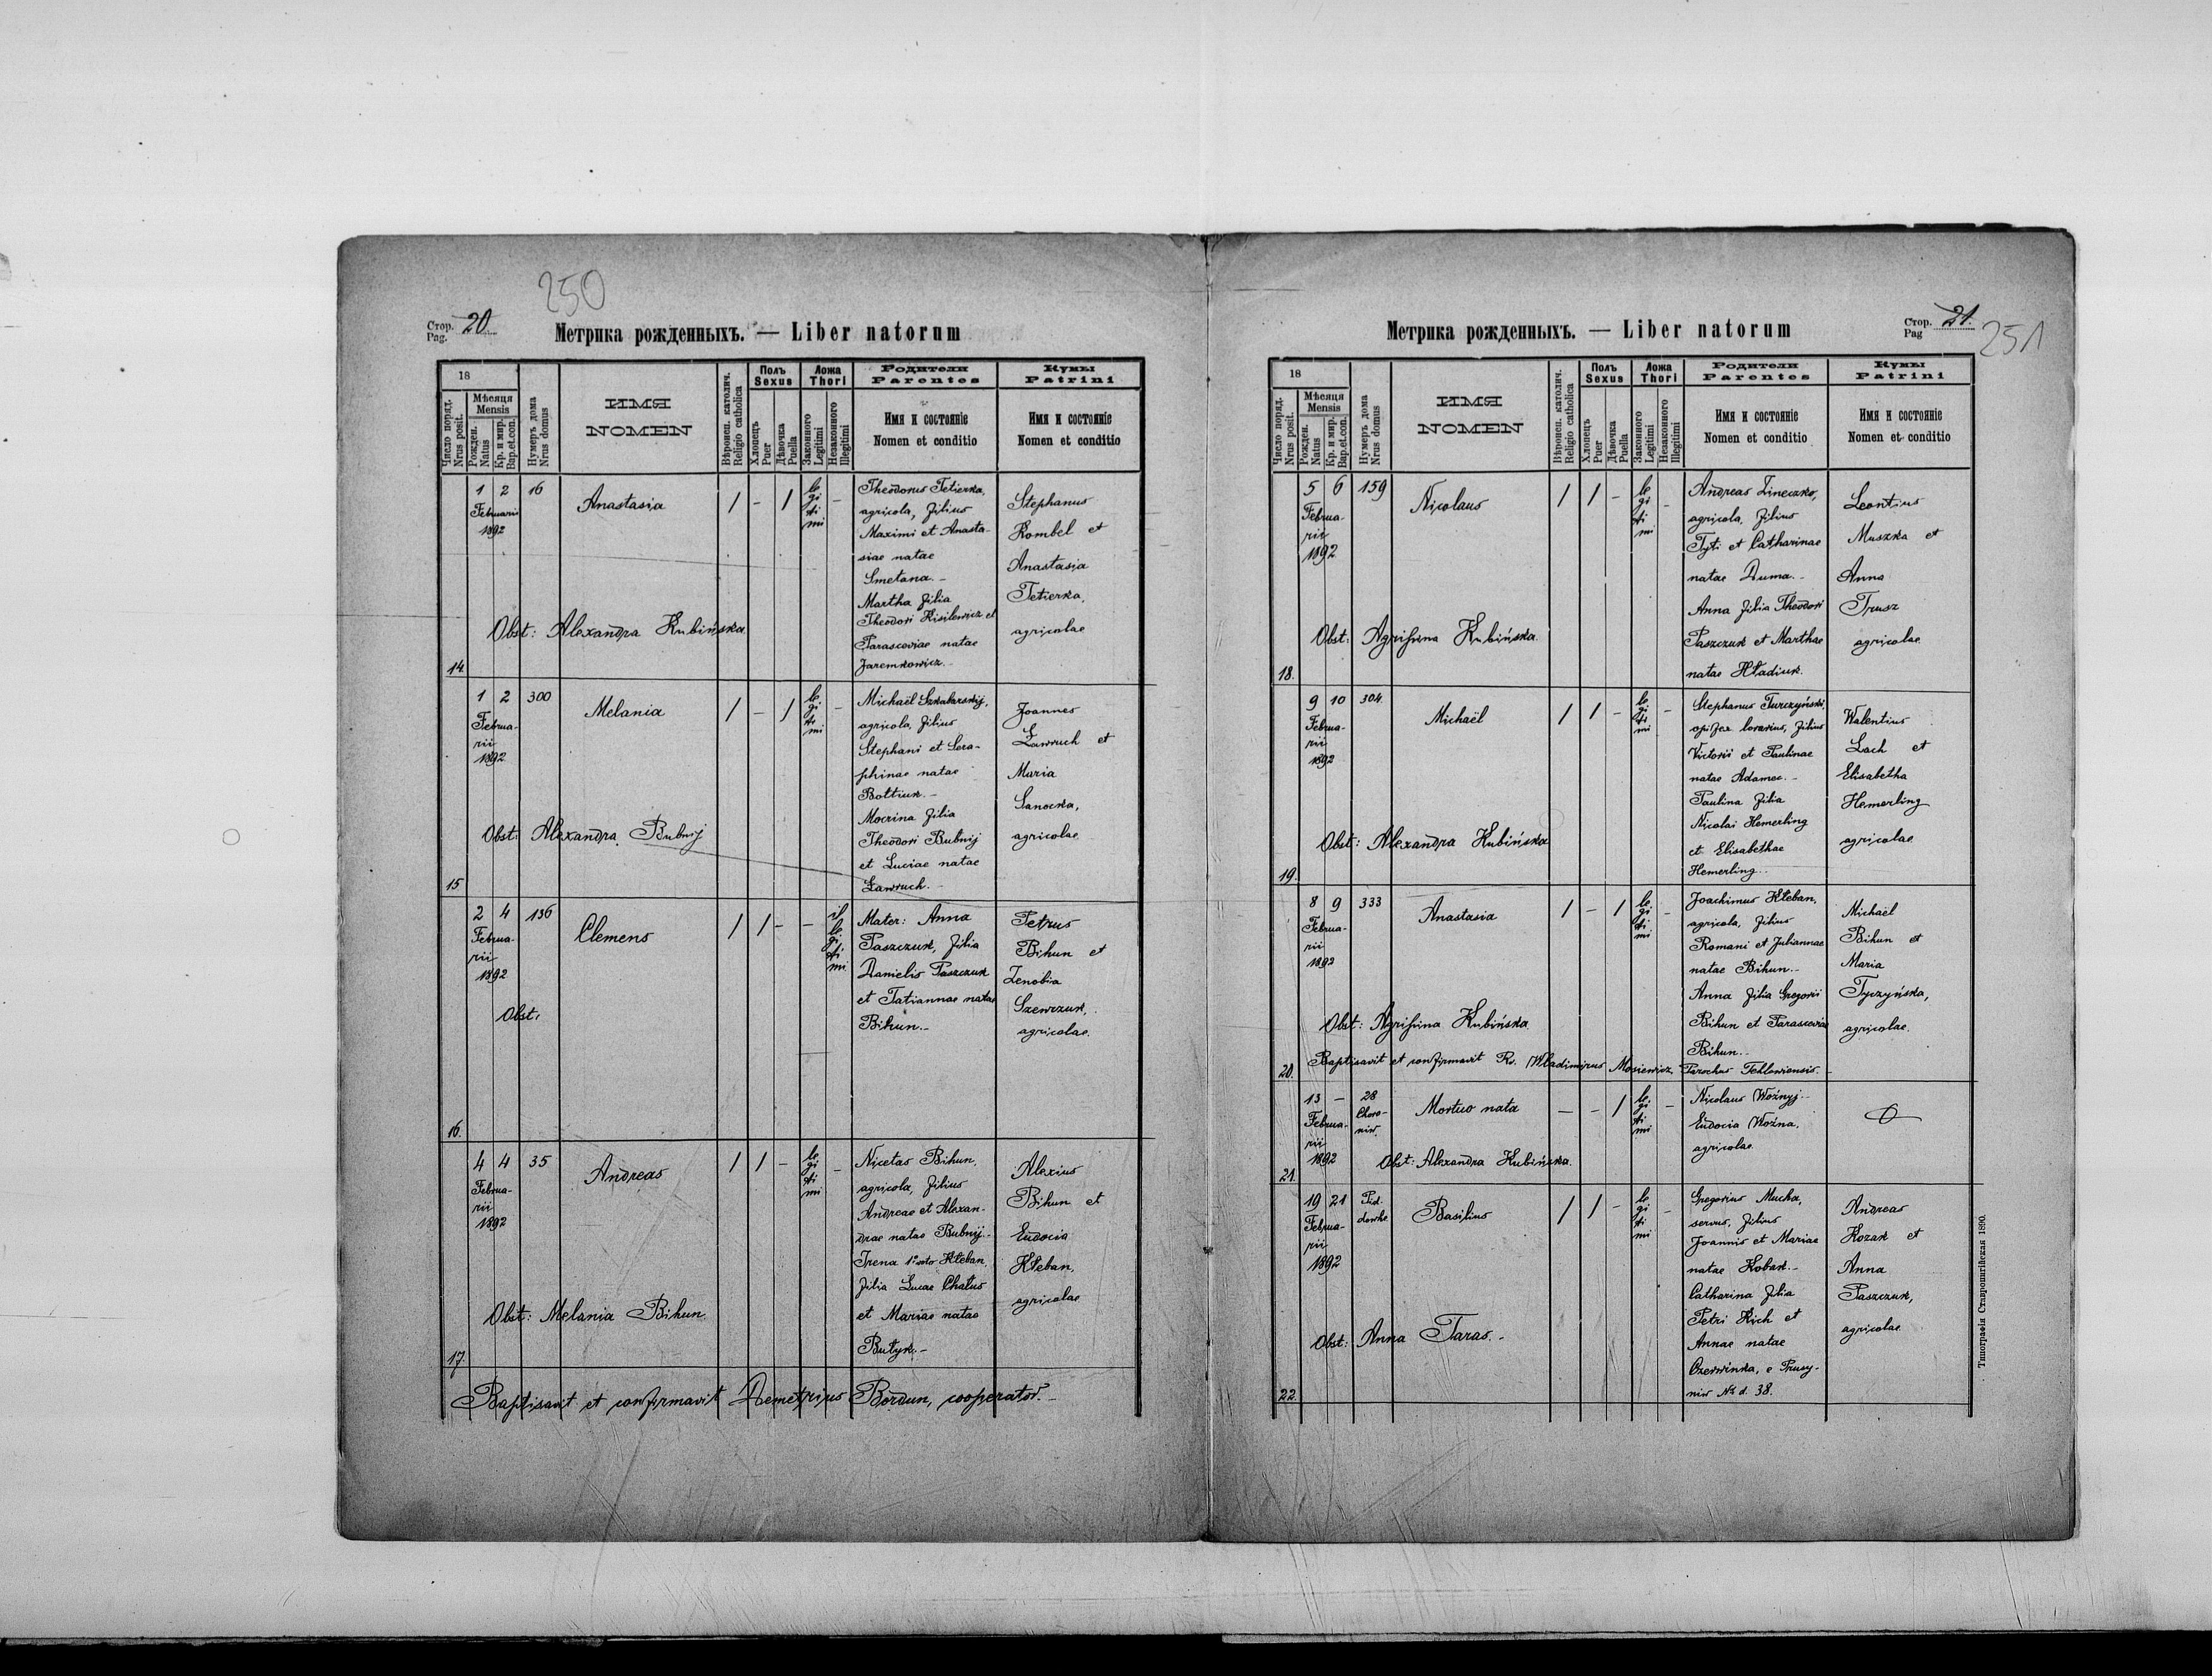 250
Стор. 20.
Pag.
Метрика рожденныхъ. — Liber natorum
18
Число поряд.
Nrus posit.
Мѣсяця
Mensis
Рожден.
Natus
Кр. и мир.
Bap.et.con.
Нумеръ дома
Nrus domus
ИМЯ
NOMEN
Вѣроисп. католич.
Religio catholica
Полъ
Sexus
Хлопецъ
Puer
Дѣвочка
Puella
Ложа
Thori
Законного
Legitimi
Незаконного
Illegitimi
Родители
Parentes
Имя и состоянiе
Nomen et conditio
Кумы
Patrini
Имя и состоянiе
Nomen et conditio
14.
1 2
Februarii
1892
16
Anastasia
/ - /
le
gi
ti
mi
-
Theodorus Tetierka,
agricola, filius
Maximi et Anasta-
siae natae
Smetana.-
Martha filia
Theodori Kisilewicz et
Parasceviae natae
Jaremkowicz.-
Stephanus
Rombel et
Anastasia
Tetierka,
agricolae
Obst: Alexandra Kubińska
15
1 2
Februa-
rii
1892
300
Melania
/ - /
le
gi
ti
mi
-
Michaël Szkabarskij,
agricola, filius
Stephani et Sera-
phinae natae
Bołtiuk.-
Mocrina filia
Theodori Bubnij
et Luciae natae
Ławruch.-
Joannes
Ławruch et
Maria
Sanocka,
agricolae
Obst: Alexandra Bubnij
16.
2 4
Februa-
rii
1892
136
Clemens
/ / - -
il
le
gi
ti
mi
Mater: Anna
Paszczuk, filia
Danielis Paszczuk
et Tatiannae natae
Bihun.-
Petrus
Bihun et
Zenobia
Szewczuk,
agricolae.
Obst:
17.
4 4
Februa-
rii
1892
35
Andreas
/ / -
le
gi
ti
mi
-
Nicetas Bihun,
agricola, filius
Andreae et Alexan-
drae natae Bubnij.-
Irena 1º voto Kłeban,
filia Lucae Chatus
et Mariae natae
Butyk.-
Alexius
Bihun et
Eudocia
Kłeban,
agricolae
Obst: Melania Bihun.
Baptisavit et confirmavit Demetrius Bordun, cooperator.-
Стор. 21.
Pag
251
Метрика рожденныхъ. — Liber natorum
18
Число поряд.
Nrus posit.
Мѣсяця
Mensis
Рожден.
Natus
Кр. и мир.
Bap.et.con.
Нумеръ дома
Nrus domus
ИМЯ
NOMEN
Вѣроисп. католич.
Religio catholica
Полъ
Sexus
Хлопецъ
Puer
Дѣвочка
Puella
Ложа
Thori
Законного
Legitimi
Незаконного
Illegitimi
Родители
Parentes
Имя и состоянiе
Nomen et conditio
Кумы
Patrini
Имя и состоянiе
Nomen et conditio
18.
5 6
Februa-
rii
1892
159
Nicolaus
/ / -
le
gi
ti
mi
-
Andreas Lineczko,
agricola, filius
Tyti et Catharinae
natae Duma.-
Anna filia Theodori
Paszczuk et Marthae
natae Hładiuk.
Leontius
Muszka et
Anna
Trusz
agricolae
Obst: Agrifina Kubińska.
19.
9 10
Februa-
rii
1892
304
Michaël
/ / -
le
gi
ti
mi
-
Stephanus Turczyński,
opifex lorarius, filius
Victorii et Paulinae
natae Adamec.-
Paulina filia
Nicolai Hemerling
et Elisabethae
Hemerling.-
Walentius
Lach et
Elisabetha
Hemerling
agricolae
Obst: Alexandra Kubińska
20.
8 9
Februa-
rii
1892
333
Anastasia
/ - /
le
gi
ti
mi
-
Joachimus Kłeban,
agricola, filius
Romani et Juliannae
natae Bihun.-
Anna filia Gregorii
Bihun et Parasceviae
Bihun.-
Michaël
Bihun et
Maria
Tyczyńska,
agricolae.
Obst: Agrifina Kubińska
Baptisavit et confirmavit R. Wladimirus Mosiewicz, Parochus Tehlowiensis.-
21.
13 -
Februa-
rii
1892
28
Choro-
niw.
Mortuo nata
- - /
le
gi
ti
mi
-
Nicolaus Woźnyj.-
Eudocia Woźna,
agricolae
Obst: Alexandra Kubińska.
22.
19 21
Februa-
rii
1892
Pid-
Basilius
/ / -
le
gi
ti
mi
-
Gregorius Mucha,
servus, filius
Joannis et Mariae
natae Kobak.-
Catharina filia
Petri Kich et
Annae natae
Czerwinka, e Prusy-
niw Nº d. 38.
Andreas
Kozak et
Anna
Paszczuk,
agricolae
Obst: Anna Taras.-
Типографія Ставропигійская 1890.